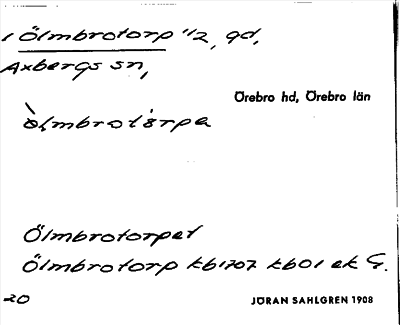 1 Ölmbrotorp 1/2, gd,
Axbergs sn,
Örebro hd, Örebro län
òlmbrotȯrpa
Ölmbrotorpet
Ölmbrotorp kb1707 kb01 ek G.
20
JÖRAN SAHLGREN 1908